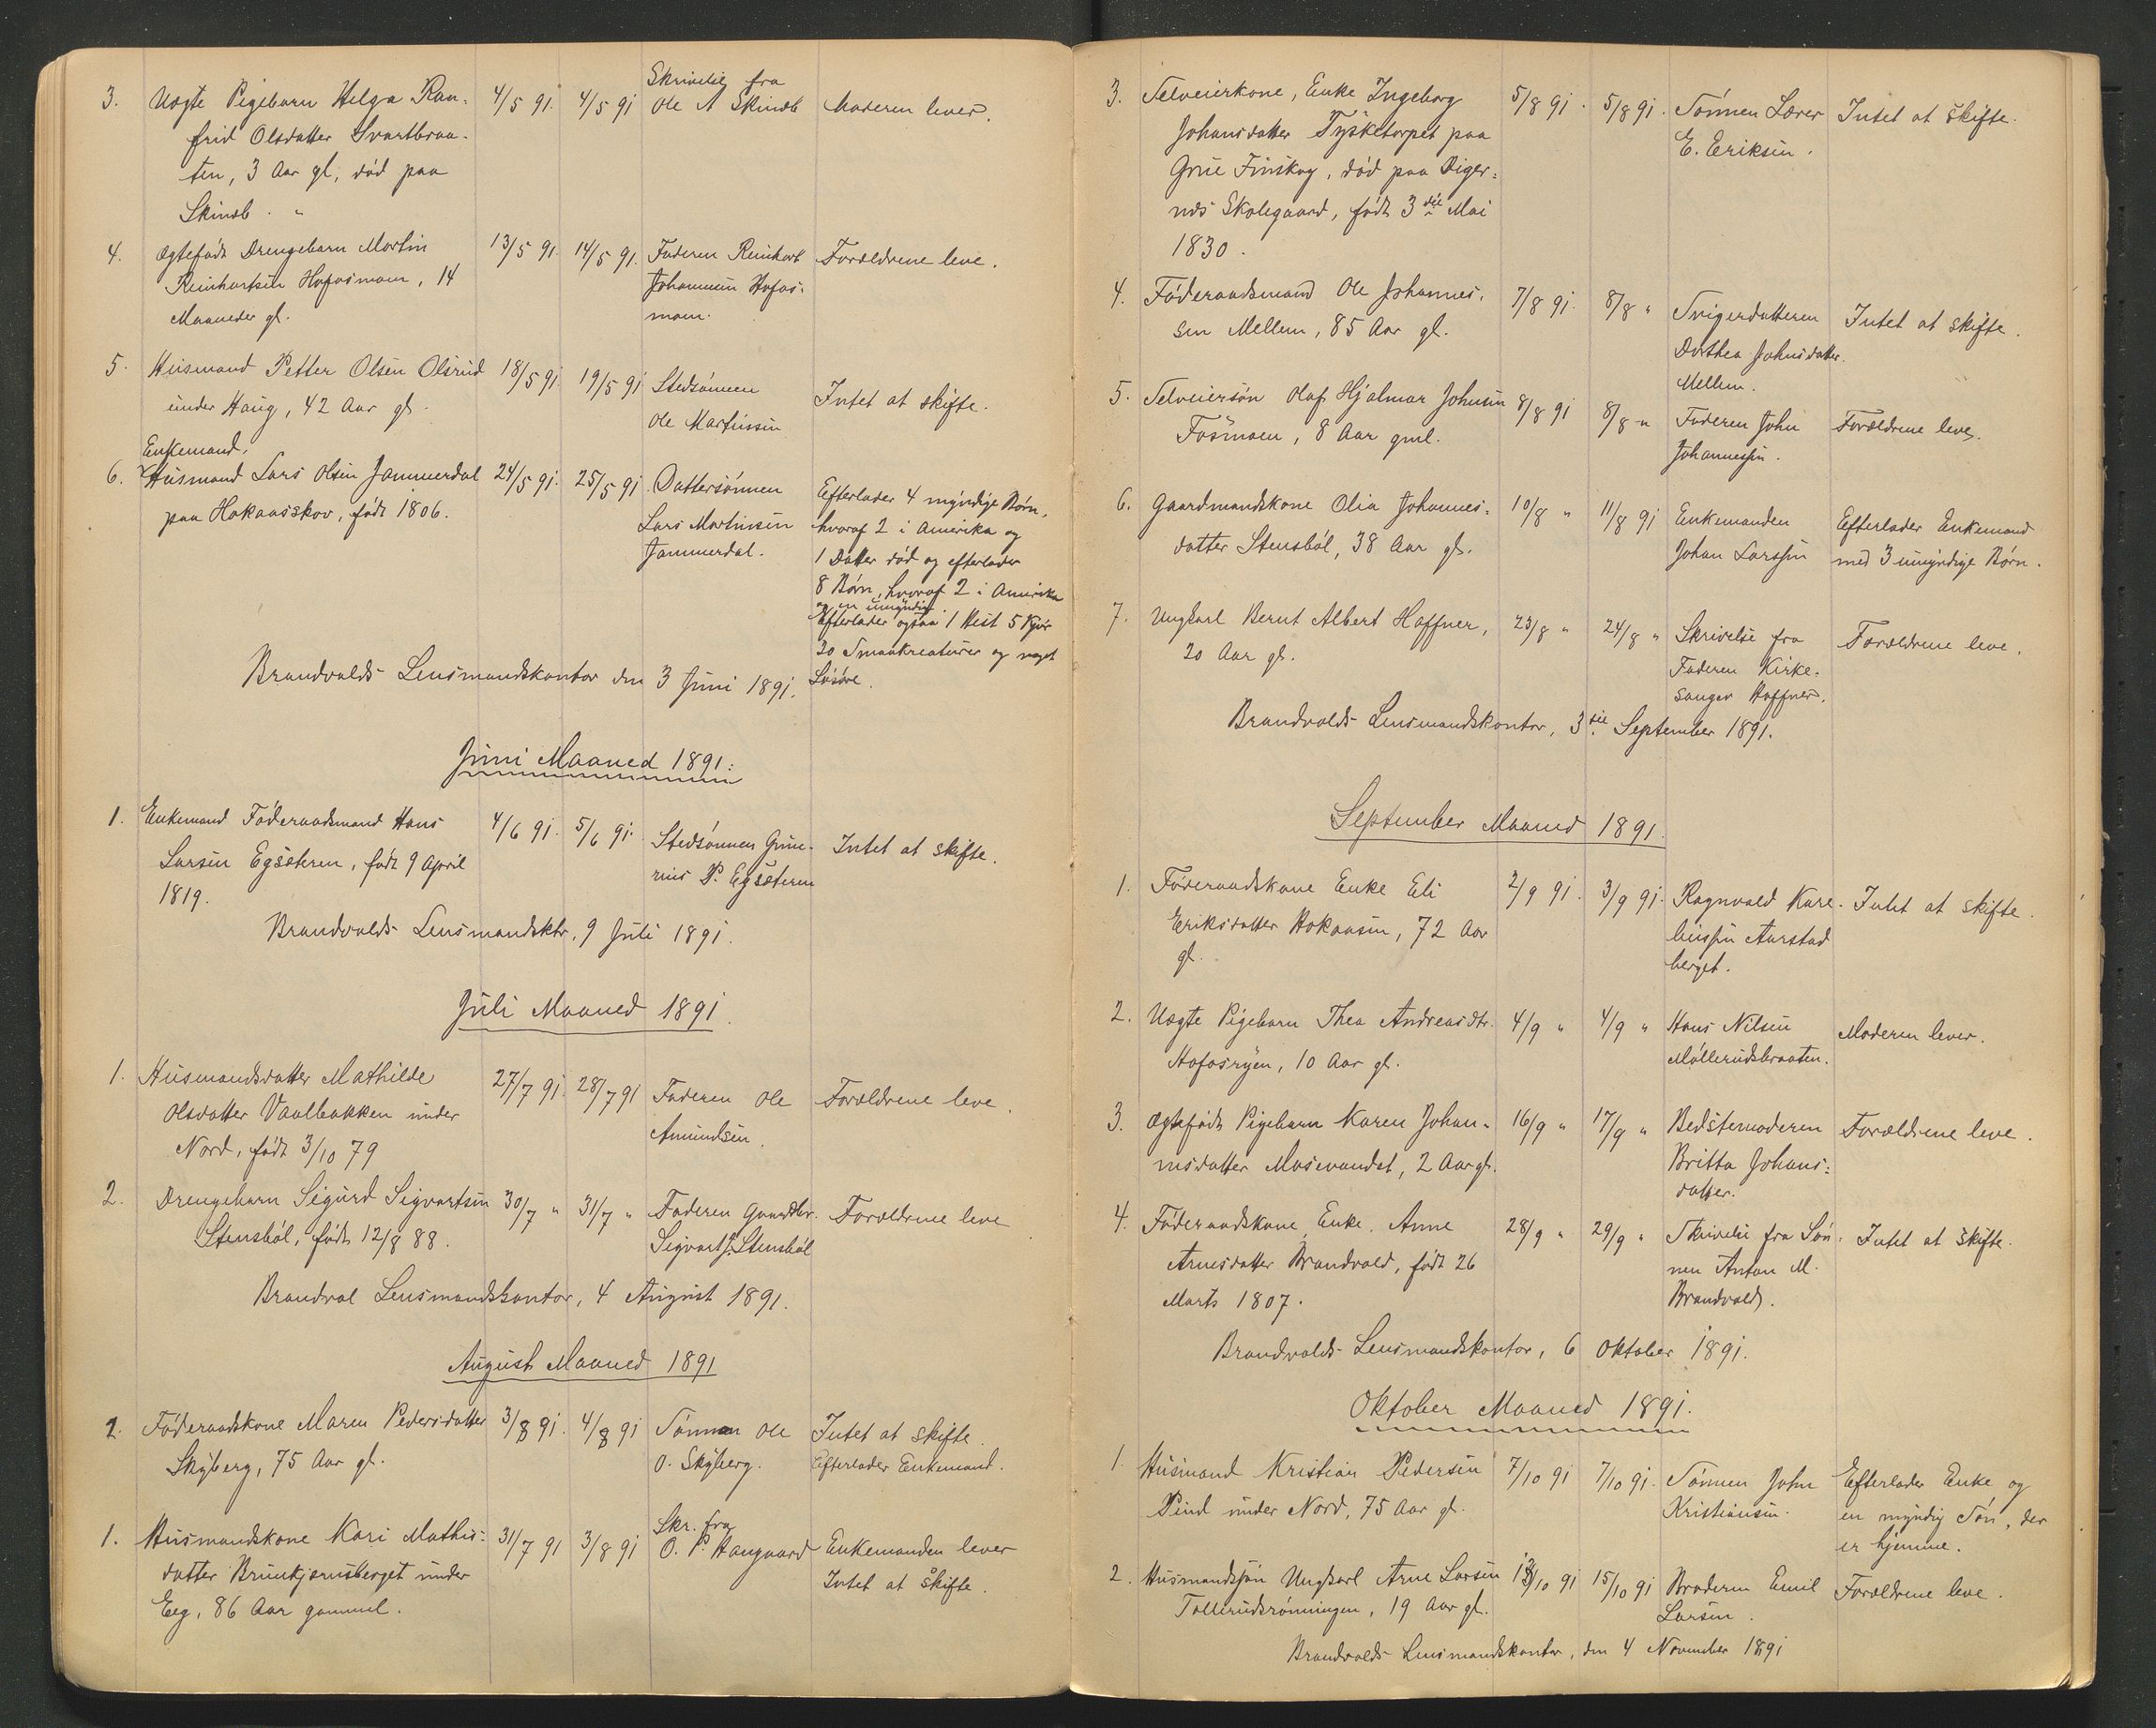 3. Uægte Pigebarn Helga Ran- 4/5 91. 4/5 91 Skrivelse fra Ole A Skinnb Moderen lever.
frid Olsdatter Svartbraa-
ten, 3 Aar gl, død paa
4. Ægtefødt Drengebarn Martin 13/5 91. 14/5 91. Faderen Reinhart Forældrene leve.
Reinhartsen Hofosmoen, 14 Johannesen Hofos-
Maaneder gl. moen.
5. Husmand Petter Olsen Olsrud 18/5 91 19/5 91 Stedsønnen Intet at skifte.
under Haug, 42 Aar gl. Ole Martinsen
Enkemand.
6. Husmand Lars Olsen Jammerdal 24/5 91. 25/5 91. Dattersønnen Efterlader 4 myndige Børn,
paa Hokaasskov, født 1806. Lars Martinsen hvoraf 2 i Amerika og
Jammerdal. 1 Datter død og efterlader
8 Børn, hvoraf 2 i Amerika
og en umyndig.
Efterlader ogsaa 1 Hest 5 Kjør
20 Smaakreaturer og noget
Løsøre.
Brandvolds Lensmandskontor den 3 Juni 1891.
Juni Maaned 1891.
1. Enkemand Føderaadsmand Hans 4/6 91. 5/6 91. Stedsønnen Gun- Intet at skifte.
Larsen Egsæteren, født 9 April nius P. Egsæteren
1819.
Brandvolds Lensmandsktr, 9 Juli 1891.
Juli Maaned 1891.
1. Husmandsdatter Mathilde 27/7 91. 28/7 91 Faderen Ole Forældrene leve.
Olsdatter Vaalbakken under Amundsen.
Nord, født 3/10 79
2. Drengebarn Sigurd Sigvartsen 30/7 " 31/7 " Faderen Gaardbr. Forældrene leve
Stensbøl, født 12/8 88. Sigvart J. Stensbøl
Brandval Lensmandskontor, 4 August 1891.
August Maaned 1891
2. Føderaadskone Maren Pedersdatter 3/8 91. 4/8 91 Sønnen Ole Intet at skifte.
Skyberg, 75 Aar gl. O. Skyberg. Efterlader Enkemand.
1. Husmandskone Kari Mathis- 31/7 91 3/8 91 Skr. fra O. P. Haugaard Enkemanden lever
datter Brunkjernsberget under Intet at skifte.
Eeg, 86 Aar gammel.
3. Selveierkone, Enke Ingeborg 5/8 91. 5/8 91. Sønnen Lærer Intet at skifte.
Johansdatter Tysketorpet paa E. Eriksen.
Grue Finskog, død paa Diger-
næs Skolegaard, født 3die Mai
1830.
4. Føderaadsmand Ole Johannes- 7/8 91. 8/8 " Svigerdatteren Intet at skifte.
sen Mellem, 85 Aar gl. Dorthea Johnsdatter
Mellem.
5. Selveiersøn Olaf Hjalmar Johnsen 8/8 91 8/8 " Faderen John Forældrene leve.
Fosmoen, 8 Aar gml. Johannessen.
6. Gaardmandskone Olia Johannes- 10/8 " 11/8 91 Enkemanden Efterlader Enkemand
datter Stensbøl, 38 Aar gl. Johan Larssen med 3 umyndige Børn.
7. Ungkarl Bernt Albert Haffner, 23/8 " 24/8 " Skrivelse fra Forældrene leve.
20 Aar gl. Faderen Kirke-
sanger Haffner.
Brandvolds Lensmandskontor, 3die September 1891.
September Maaned 1891.
1. Føderaadskone Enke Eli 2/9 91. 3/9 91. Ragnvald Kare- Intet at skifte.
Eriksdatter Hokaasen, 72 Aar liussen Aurstad
gl. berget.
2. Uægte Pigebarn Thea Andreasdtr. 4/9 " 4/9 " Hans Nilsen Moderen lever.
Hofosryen, 10 Aar gl. Møllerudsbraaten.
3. Ægtefødt Pigebarn Karen Johan- 16/9 " 17/9 " Bedstemoderen Forældrene leve.
nesdatter Mosevandet, 2 Aar gl. Britta Johans-
datter.
4. Føderaadskone, Enke Anne 28/9 " 29/9 " Skrivelse fra Søn- Intet at skifte.
Arnesdatter Brandvold, født 26 nen Anton M.
Marts 1807. Brandvold.
Brandvolds Lensmandskontor, 6 Oktober 1891.
Oktober Maaned 1891.
1. Husmand Kristian Pedersen 7/10 91 7/10 91. Sønnen John Efterlader Enke og
Pind under Nord, 75 Aar gl. Kristiansen. en myndig Søn, der
er hjemme.
2. Husmandssøn Ungkarl Arne Larsen 13/10 91 15/10 91 Broderen Emil Forældrene leve.
Tollerudsrønningen, 19 Aar gl. Larsen.
Brandvolds Lensmandskontor, den 4 November 1891